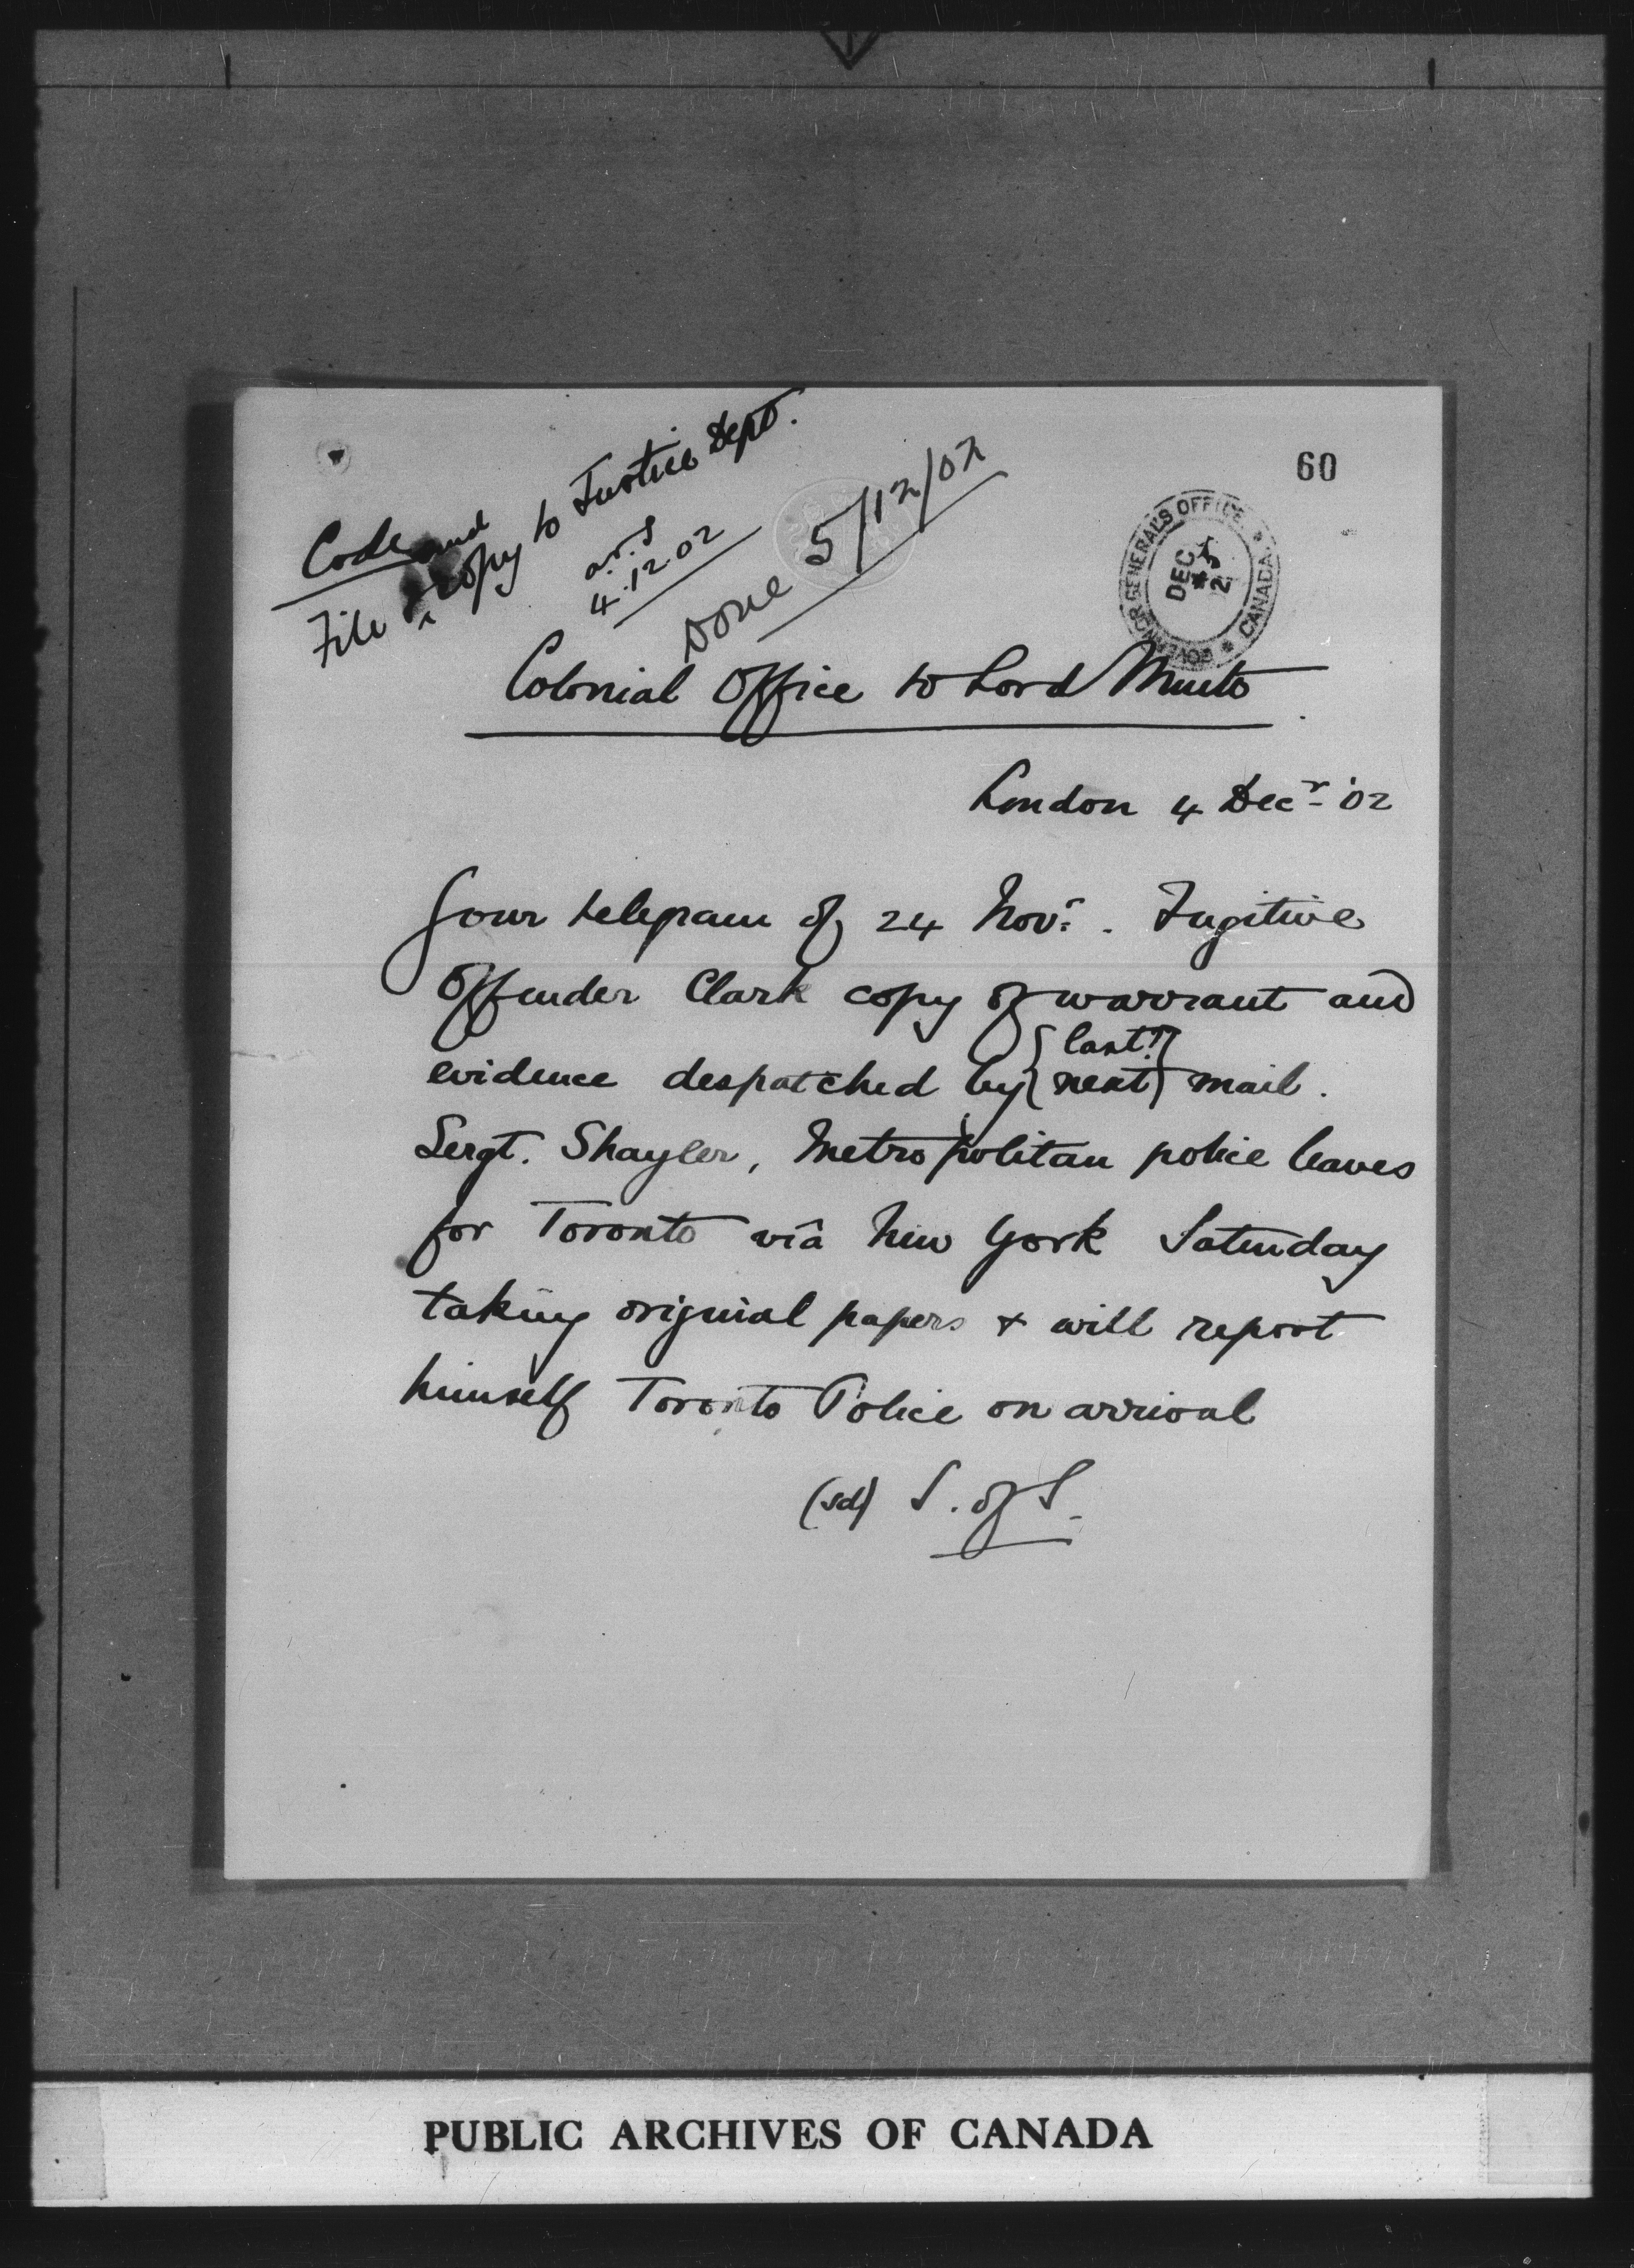 60
Code
File and copy to Justice Dept.
a.F.S
4.12.02
Done 5/12/02
GOVERNOR GENERAL'S OFFICE * CANADA *
DEC 5 2
Colonial Office to Lord Minto
London 4 Decr '02
Your telegram of 24 Novr. Fugitive
Offender Clark copy of warrant and
evidence despatched by { last? next } mail.
Sergt. Shayler, Metropolitan police leaves
for Toronto viâ New York Saturday
taking original papers & will report
himself Toronto Police on arrival
(sd) S. of S.
PUBLIC ARCHIVES OF CANADA